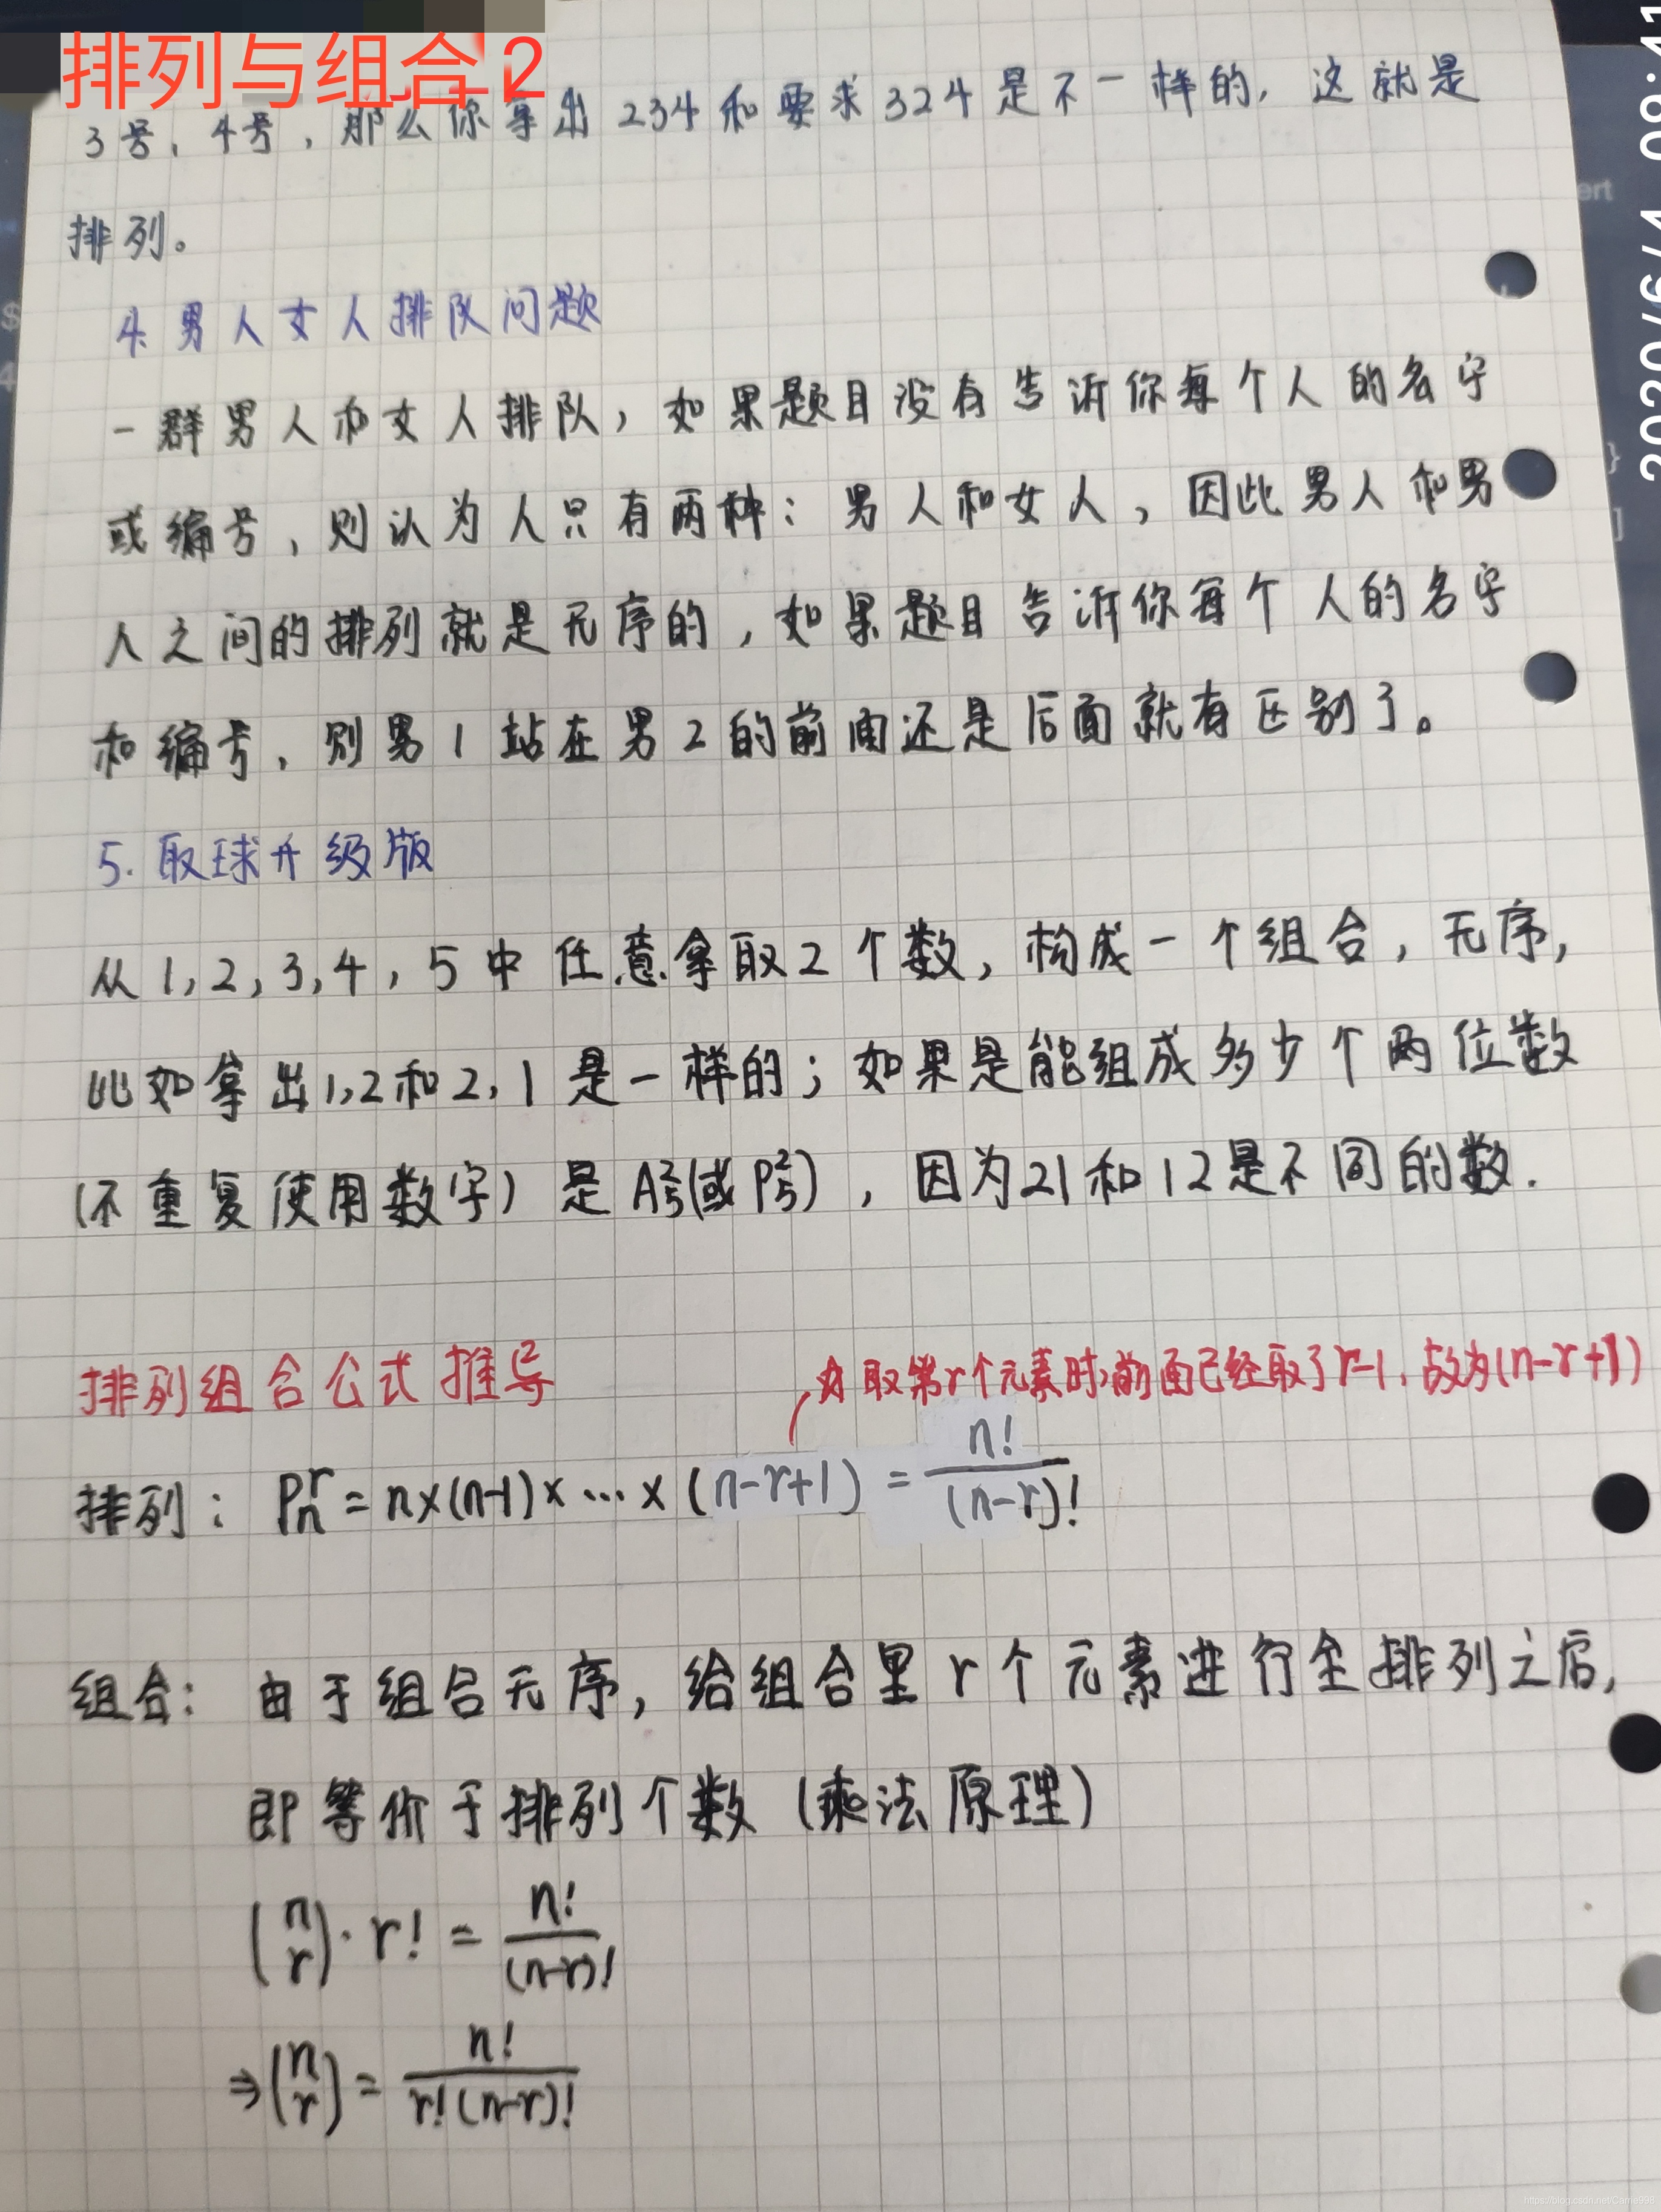 排列与组合2
3号、4号,那么你拿出234和要求324是不一样的,这就是
排列。
4. 男人女人排队问题
一群男人和女人排队,如果题目没有告诉你每个人的名字
或编号,则认为人只有两种:男人和女人,因此男人和男
人之间的排列就是无序的,如果题目告诉你每个人的名字
和编号,则男1站在男2的前面还是后面就有区别了。
5. 取球升级版
从1,2,3,4,5中任意拿取2个数,构成一个组合,无序,
比如拿出1,2和2,1是一样的;如果是能组成多少个两位数
(不重复使用数字)是A₅²(或P₅²),因为21和12是不同的数.
排列组合公式推导
取第r个元素时,前面已经取了r-1,故为(n-r+1)
排列: Pₙʳ = n×(n-1)×…×(n-r+1) = n!/(n-r)!
组合: 由于组合无序,给组合里r个元素进行全排列之后,
即等价于排列个数(乘法原理)
(n r)·r! = n!/(n-r)!
⇒(n r) = n!/r!(n-r)!
2020/6/4 09:41
ert
$
4
}
]
https://blog.csdn.net/Carrie998